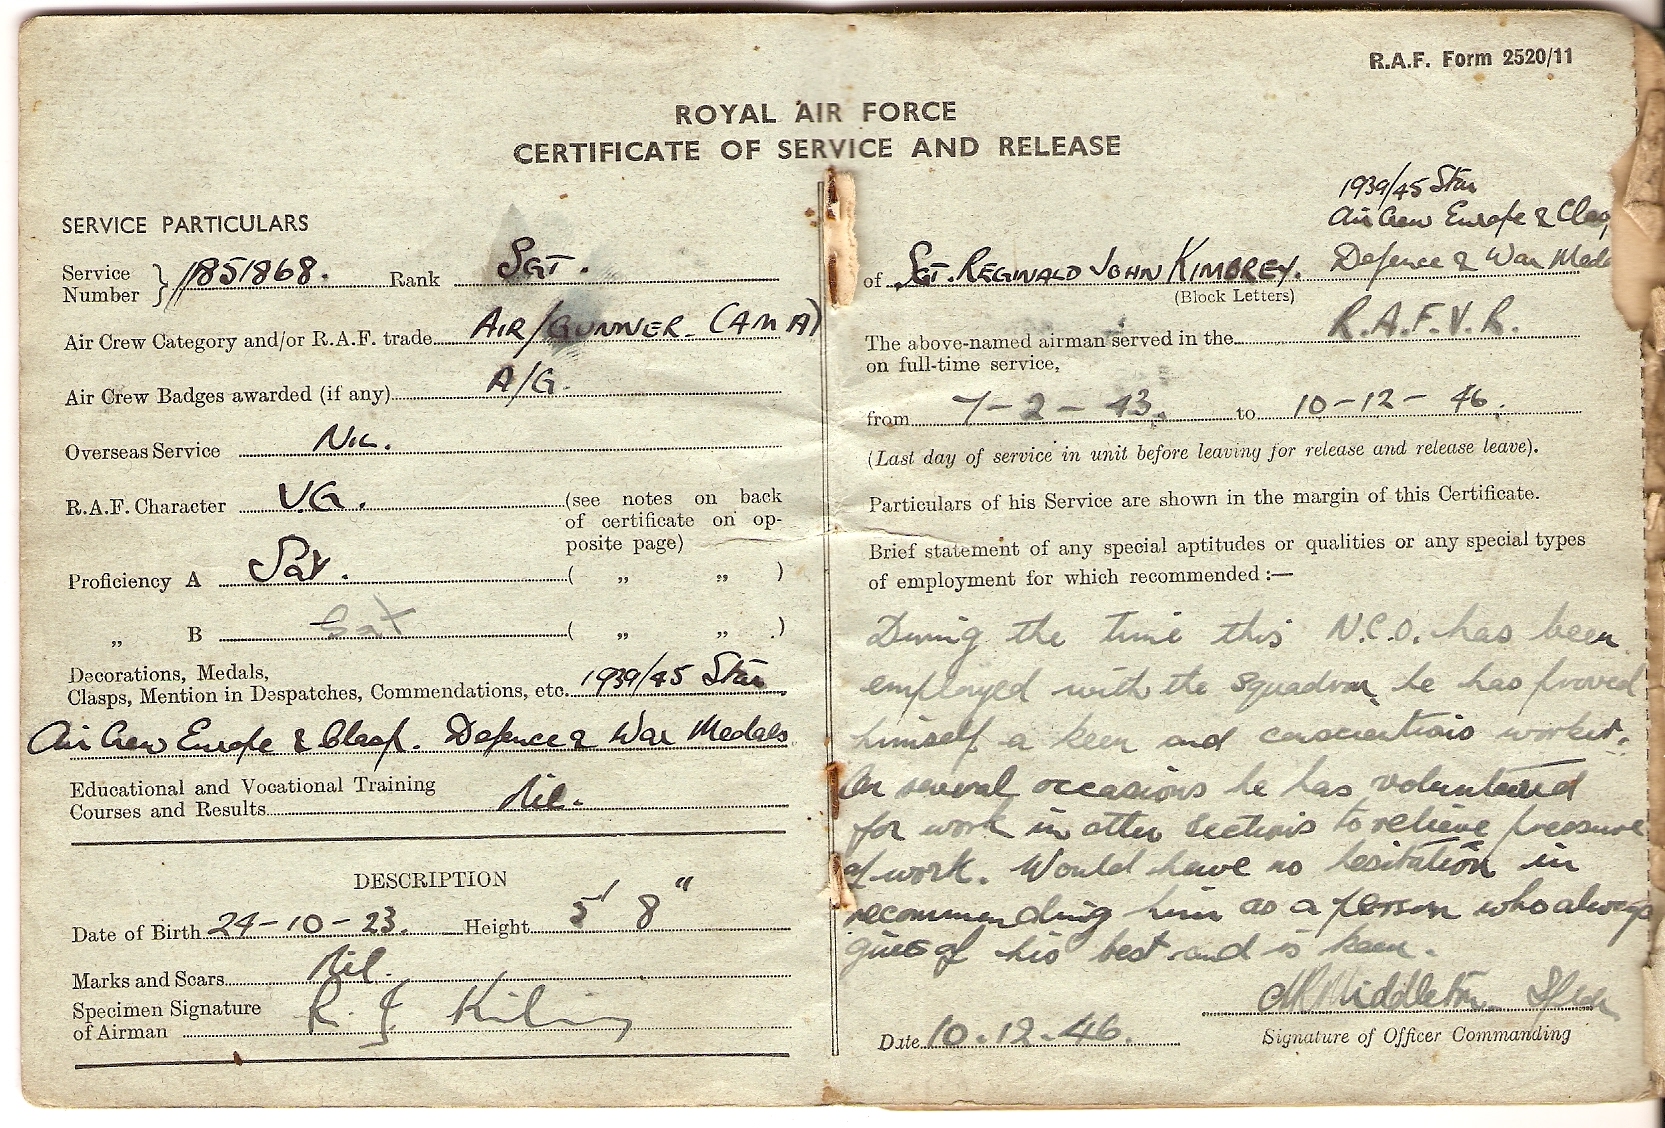 R.A.F. Form 2520/11
ROYAL AIR FORCE
CERTIFICATE OF SERVICE AND RELEASE
SERVICE PARTICULARS
Service Number } 1851868. Rank SGT.
Air Crew Category and/or R.A.F. trade AIR/GUNNER. (AMA)
Air Crew Badges awarded (if any) A/G.
Overseas Service NIL.
R.A.F. Character V.G. (see notes on back
of certificate on op-
posite page)
Proficiency A Sat. ( „ „ )
„ B Sat ( „ „ )
Decorations, Medals,
Clasps, Mention in Despatches, Commendations, etc. 1939/45 Star
Air Crew Europe & Clasp. Defence & War Medals
Educational and Vocational Training
Courses and Results Nil.
DESCRIPTION
Date of Birth 24-10-23. Height 5' 8"
Marks and Scars Nil.
Specimen Signature
of Airman R. J.
1939/45 Star
Air Crew Europe & Clasp
Defence & War Meda
of SGT. REGINALD JOHN KIMBREY.
(Block Letters)
The above-named airman served in the R.A.F.V.R.
on full-time service,
from 7-2-43. to 10-12-46.
(Last day of service in unit before leaving for release and release leave).
Particulars of his Service are shown in the margin of this Certificate.
Brief statement of any special aptitudes or qualities or any special types
of employment for which recommended :—
During the time this N.C.O. has been
employed with the squadron, he has proved
himself a keen and conscientious worker.
On several occasions he has volunteered
for work in other sections to relieve pressure
of work. Would have no hesitation in
recommending him as a person who always
gives of his best and is keen.
Middleton
Signature of Officer Commanding
Date 10.12.46.